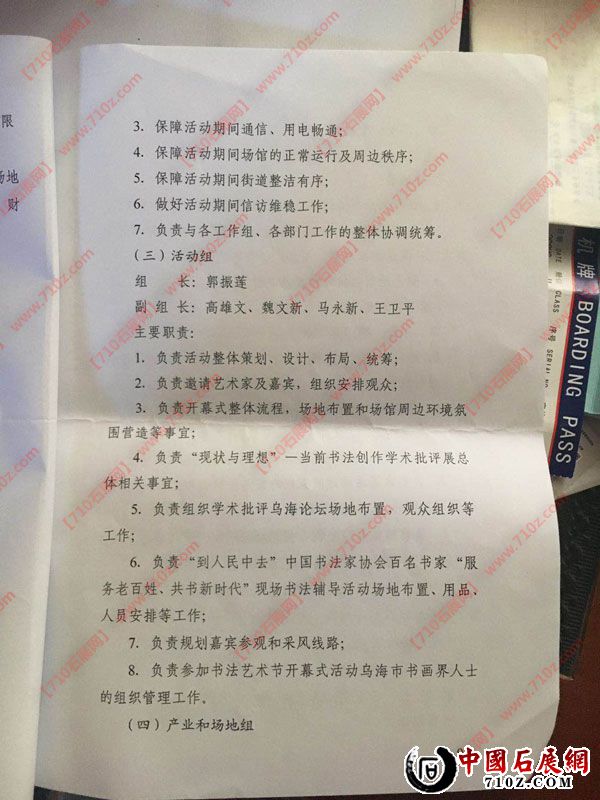 限
场地
财
3. 保障活动期间通信、用电畅通;
4. 保障活动期间场馆的正常运行及周边秩序;
5. 保障活动期间街道整洁有序;
6. 做好活动期间信访维稳工作;
7. 负责与各工作组、各部门工作的整体协调统筹。
(三) 活动组
组 长: 郭振莲
副 组 长: 高雄文、魏文新、马永新、王卫平
主要职责:
1. 负责活动整体策划、设计、布局、统筹;
2. 负责邀请艺术家及嘉宾, 组织安排观众;
3. 负责开幕式整体流程, 场地布置和场馆周边环境氛
围营造等事宜;
4. 负责“现状与理想”—当前书法创作学术批评展总
体相关事宜;
5. 负责组织学术批评乌海论坛场地布置, 观众组织等
工作;
6. 负责“到人民中去”中国书法家协会百名书家“服
务老百姓、共书新时代”现场书法辅导活动场地布置、用品、
人员安排等工作;
7. 负责规划嘉宾参观和采风线路;
8. 负责参加书法艺术节开幕式活动乌海市书画界人士
的组织管理工作。
(四) 产业和场地组
机牌
BOARDING PASS
CLASS
序号
【710石展网】www.710z.com
中國石展網
710Z.COM